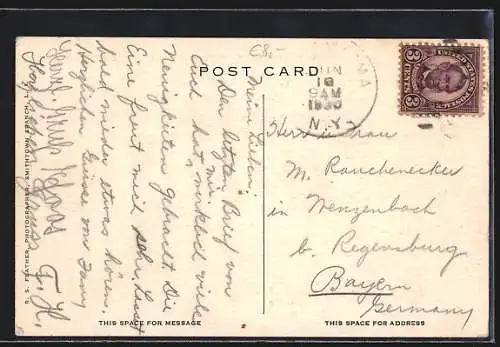 E8,-
POST CARD
JUN
18
9 AM
1930
N.Y.
3 3
Meine Lieben,
Den letzten Brief von
Euch hat mir wirklich viele
Neuigkeiten gebracht. Die
Eine freut mich sehr. Lasst
bald wieder etwas hören.
Herzlichen Grüsse von Fany
Herrn u. Frau
M. Rauchenecker
in Wenzenbach
b. Regensburg
Bayern
Germany
F. H.
FEATHER, PHOTOGRAPHER, SMITHTOWN BRANCH
THIS SPACE FOR MESSAGE
THIS SPACE FOR ADDRESS